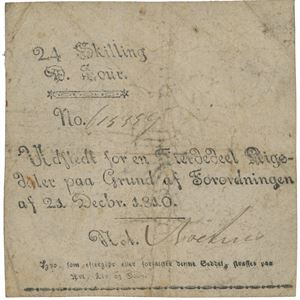 24 Skilling
D. Cour.
No.
Udstedt for en Fierdedeel Rigs-
daler paa Grund af Forordningen
af 21 Decbr. 1810.
Not.
som eftergiør eller forfalsker denne Seddel, straffes paa
Ære, Liv og